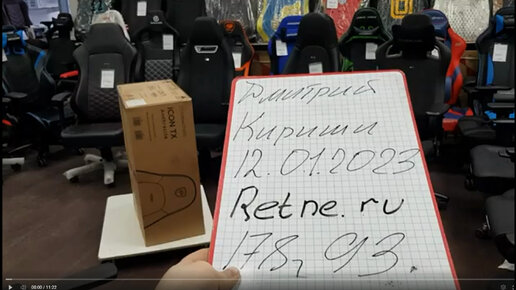 ICON TX
Дмитрий
Кириши
12.01.2023
Retne.ru
178, 93.
00:00 / 11:22